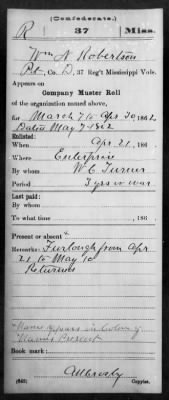 (Confederate.)
R 37 Miss.
Wm N Robertson
Pvt, Co. D, 37 Reg't Mississippi Vols.
Appears on
Company Muster Roll
of the organization named above,
for March 7 to Apr 30, 1862
Dated May 7 1862
Enlisted:
When Apr 21, 186
Where Enterprise
By whom W C Turner
Period 3 yrs or war
Last paid:
By whom
To what time , 186
Present or absent *
Remarks: Furlough from Apr
21 to May 10
Returned
* Name appears in column of
Names Present
Book mark:
(642) Copyist.